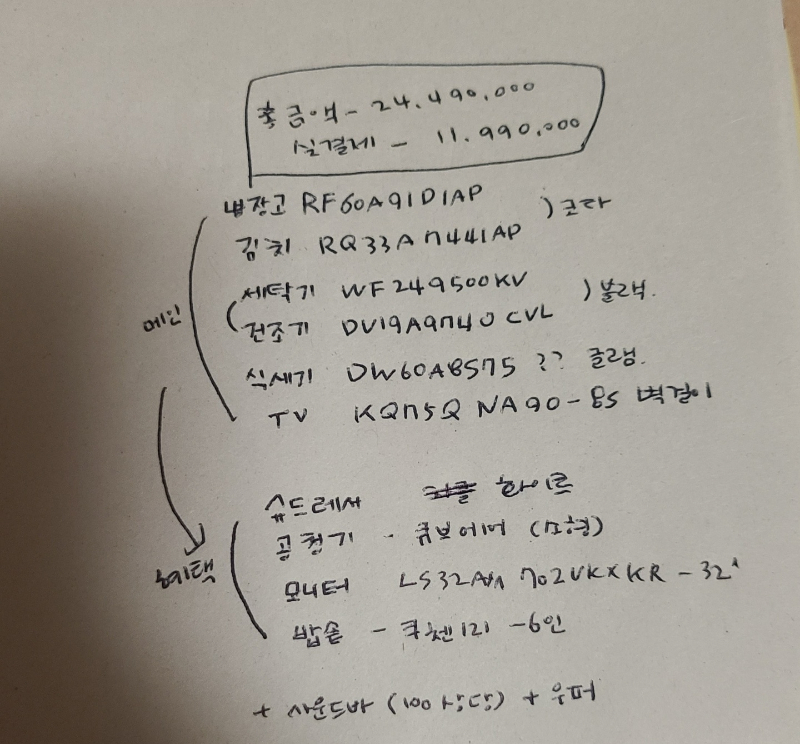 총금액 - 24.490.000
실결제 - 11.990.000
냉장고 RF60A91D1AP ) 코타
김치 RQ33A7441AP
세탁기 WF249500KV ) 블랙.
건조기 DV19A9740CVL
메인
식세기 DW60A8575 ?? 글램.
TV KQ75QNA90-85 벽걸이
슈드레서 화이트
공청기 - 큐브에어 (소형)
혜택
모니터 LS32AM702UKXKR - 32"
밥솥 - 쿠첸121 - 6인
+ 사운드바 (100상당) + 우퍼